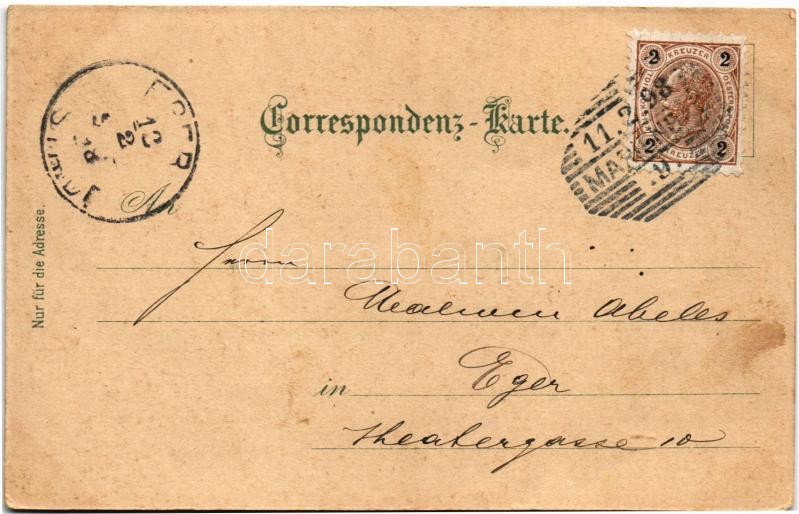 Correspondenz-Karte.
2 KREUZER 2
2 KREUZER 2
11.2.98
EGER
12
2
An
Herrn
Abeles
in Eger
Theatergasse 10
Nur für die Adresse.
darabanth